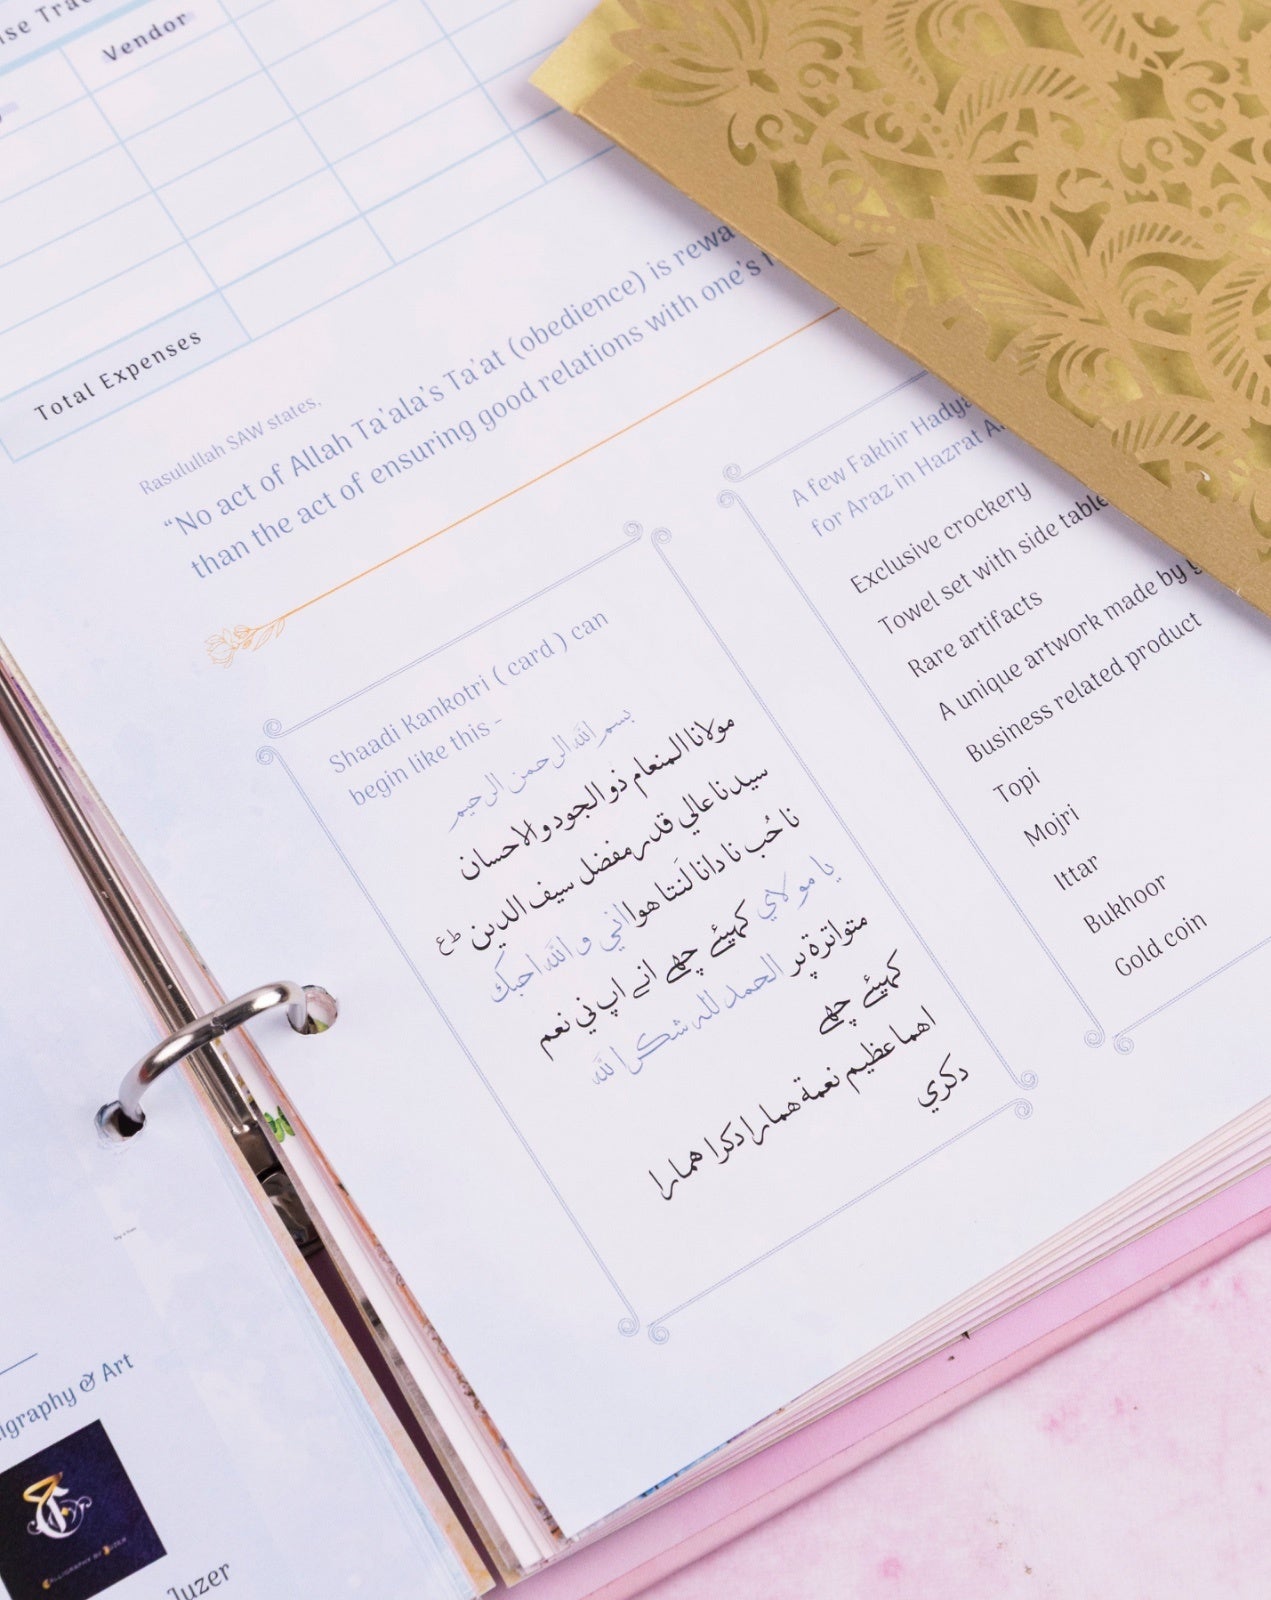 Vendor
Total Expenses
Rasulullah SAW states,
“No act of Allah Ta'ala's Ta'at (obedience) is
than the act of ensuring good relations with one's
Shaadi Kankotri ( card ) can
begin like this -
بسم الله الرحمن الرحيم
مولانا المنعام ذو الجود و الاحسان
سيدنا عالي قدر مفضل سيف الدين ط ع
نا حُب نا دانا لَنتا هوا اني و الله احبك
يا مولاي كهيئے چھے انے اپ ني نعم
متواترة پر الحمد لله شكرا لله
كهيئے چھے
اهما عظيم نعمة همارا دكرا همارا
دكري
A few Fakhir
for Araz in Hazrat
Exclusive crockery
Towel set with side table
Rare artifacts
A unique artwork made by
Business related product
Topi
Mojri
Ittar
Bukhoor
Gold coin
& Art
CALLIGRAPHY BY JUZER
Juzer